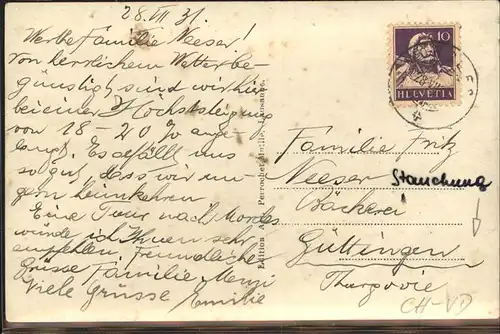 28. VII 31.
Werte Familie Neeser!
Von herrlichem Wetter be-
günstigt sind wir hier
bei einer Höchststeigung
von 18-20 % ange-
langt. Es gefällt uns
so gut, dass wir un-
gern heimkehren
Eine Tour nach
würde ich Ihnen sehr
empfehlen. Freundliche
Grüsse Familie Menzi
Viele Grüsse Emilie
Edition Perrochet
10
HELVETIA
Familie Fritz
Neeser
Stauchung
Bäckerei
Güttingen
Thurgovie
CH-VD